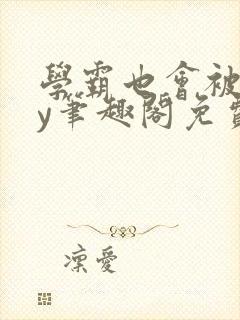 學霸也會被
y筆趣閣免費
凜愛